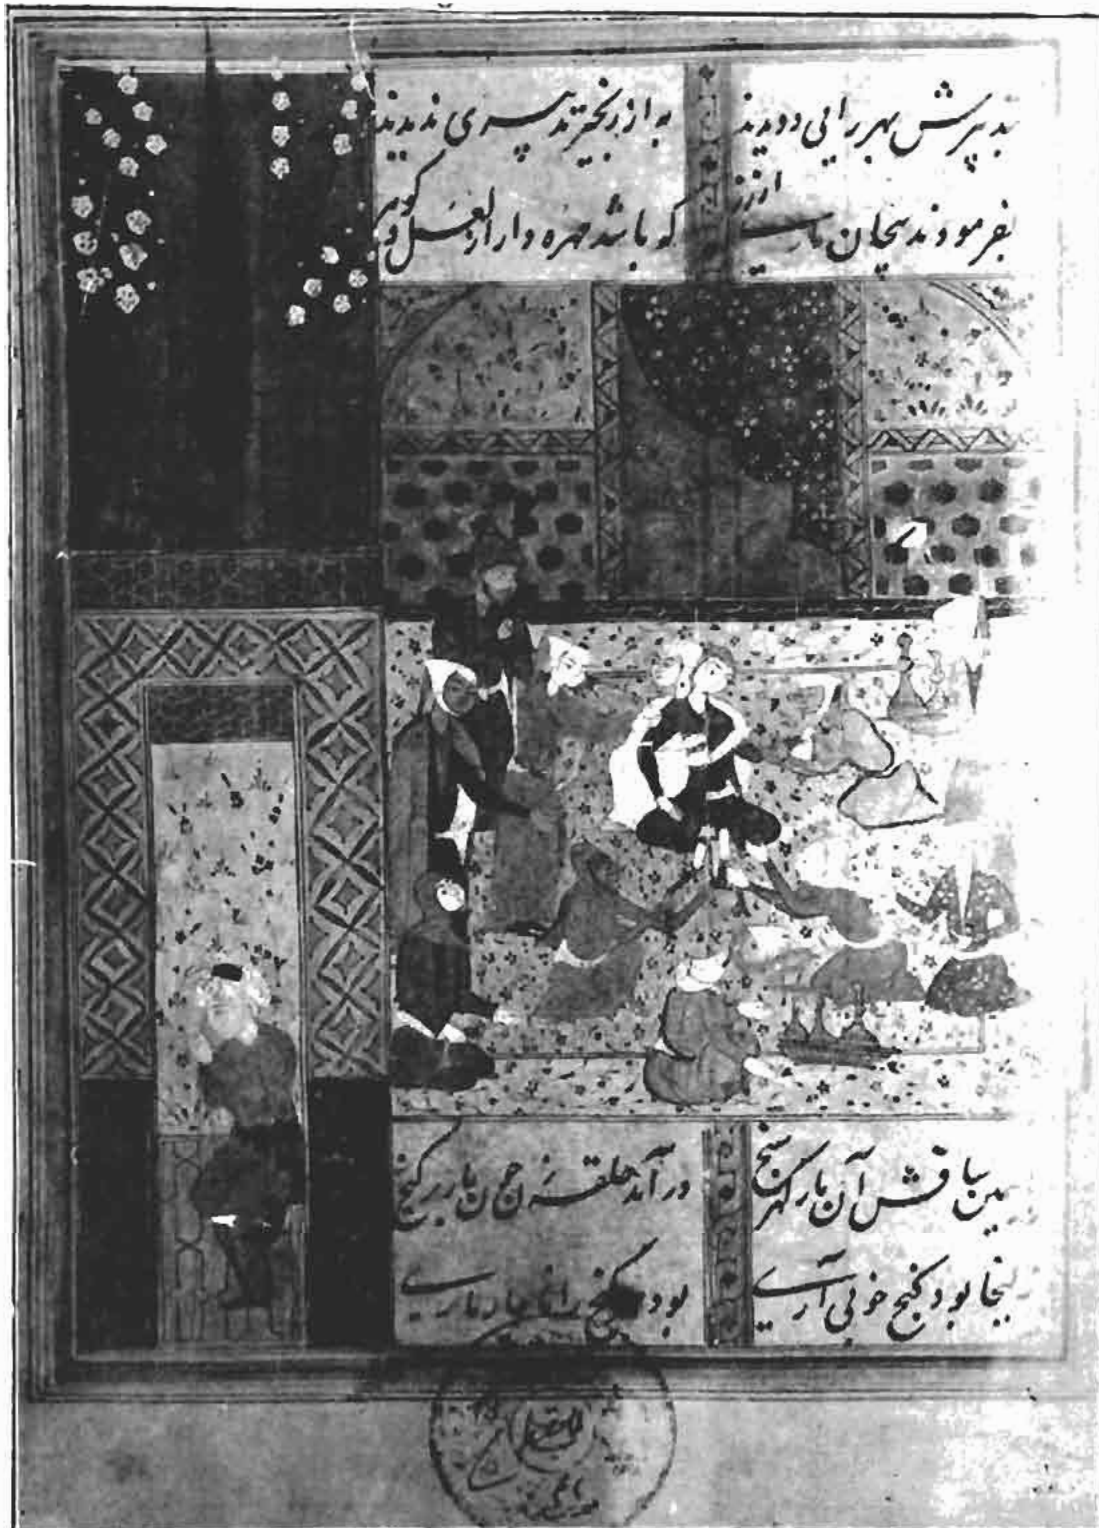 بتدبیرش بهر رایی دویدند به از زنجیر تدبیری ندیدند
بفرمودند پیچان ماری از زر که باشد مهره دار از لعل و گوهر
سیمین ساقش آن مار گهر سنج در آمد حلقه زن چون مار بر گنج
لیخا بود گنج خوبی آری بود گنج را ناچار ماری